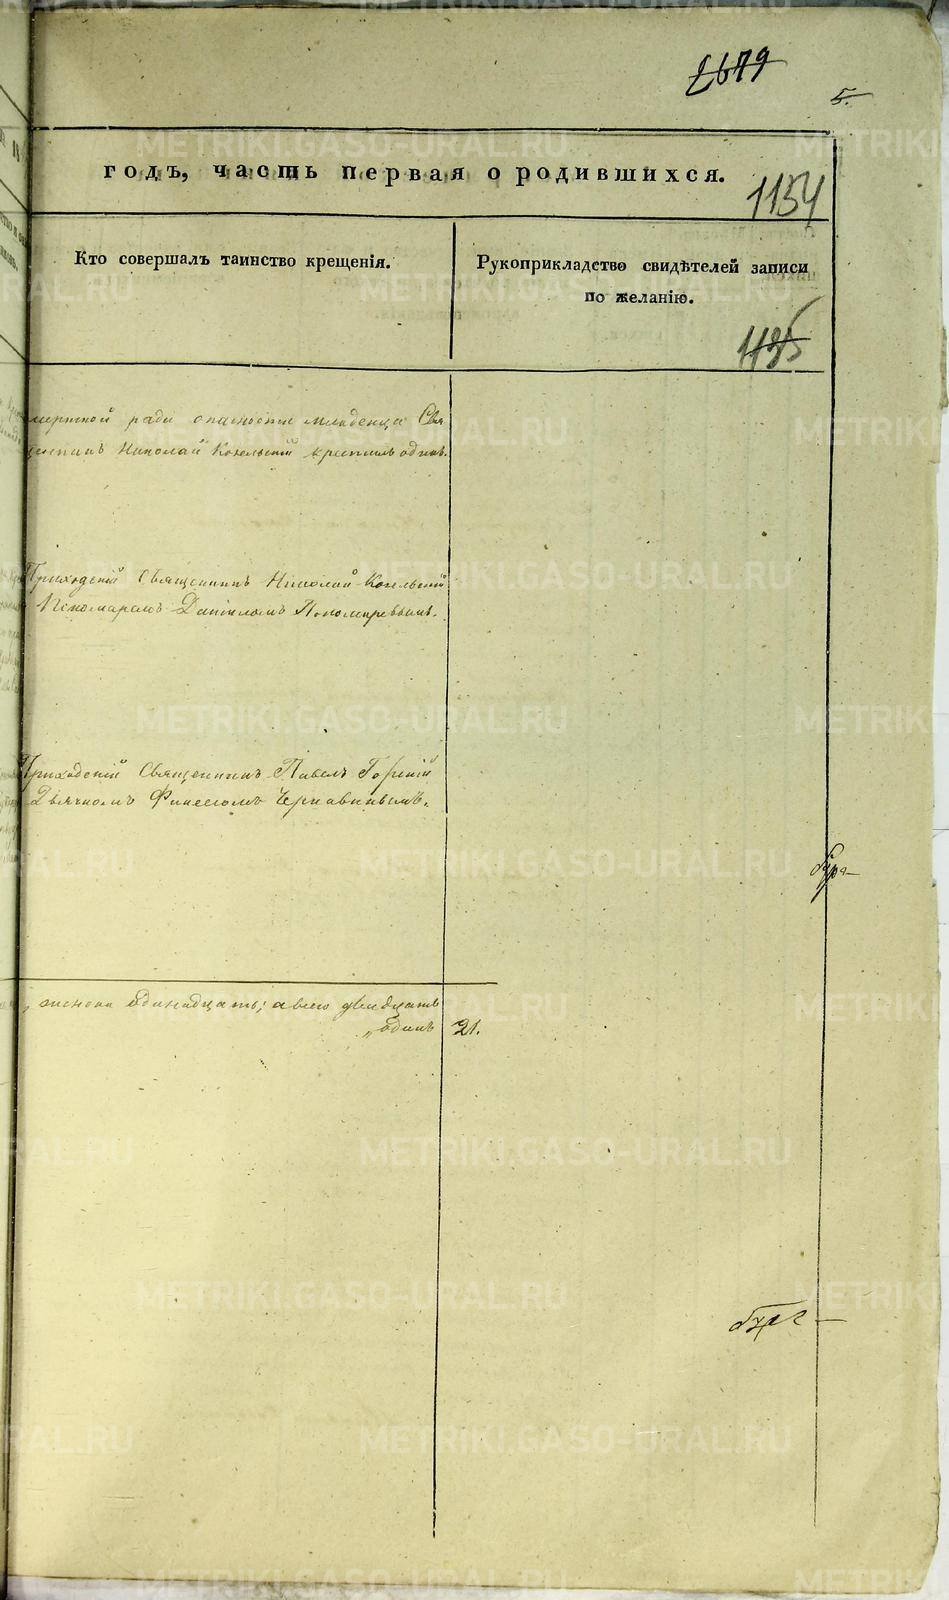 2679
5.
годъ, часть первая о родившихся.
1154
Кто совершалъ таинство крещенія.
Рукоприкладство свидѣтелей записи
по желанію.
1135
смертной ради опасности младенца Свя
щенникъ Николай Кокельскій крестилъ одинъ.
Приходскій Священникъ Николай Кокельскій
Пономаремъ Даніиломъ Пономаревымъ.
Приходскій Священникъ Павелъ Горный
Дьячкомъ Финеесомъ Чернавинымъ.
женска одинадцать; а всего двадцать
одинъ 21.
METRIKI.GASO-URAL.RU